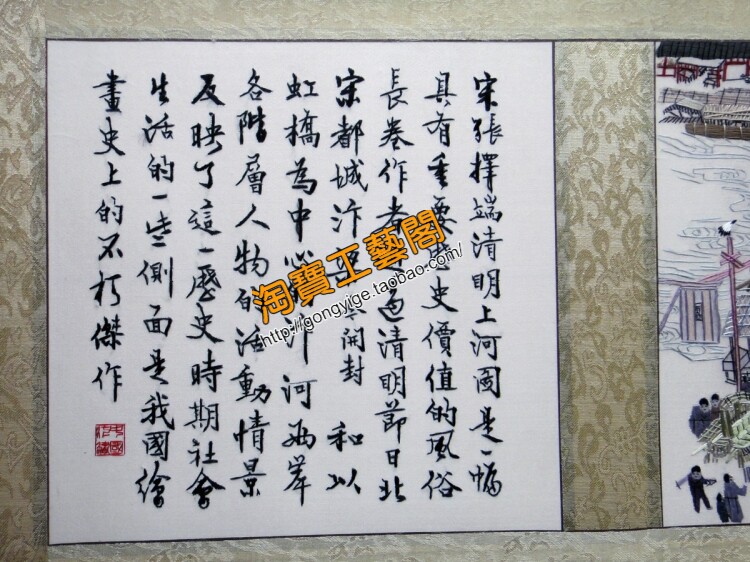 宋張擇端清明上河圖是一幅
具有重要歷史價值的風俗
長卷作者過清明節日北
宋都城汴梁開封和以
虹橋為中心汴河兩岸
各階層人物的活動情景
反映了這一歷史時期社會
生活的一些側面是我國繪
畫史上的不朽傑作
淘寶工藝閣
http://gongyige.taobao.com/